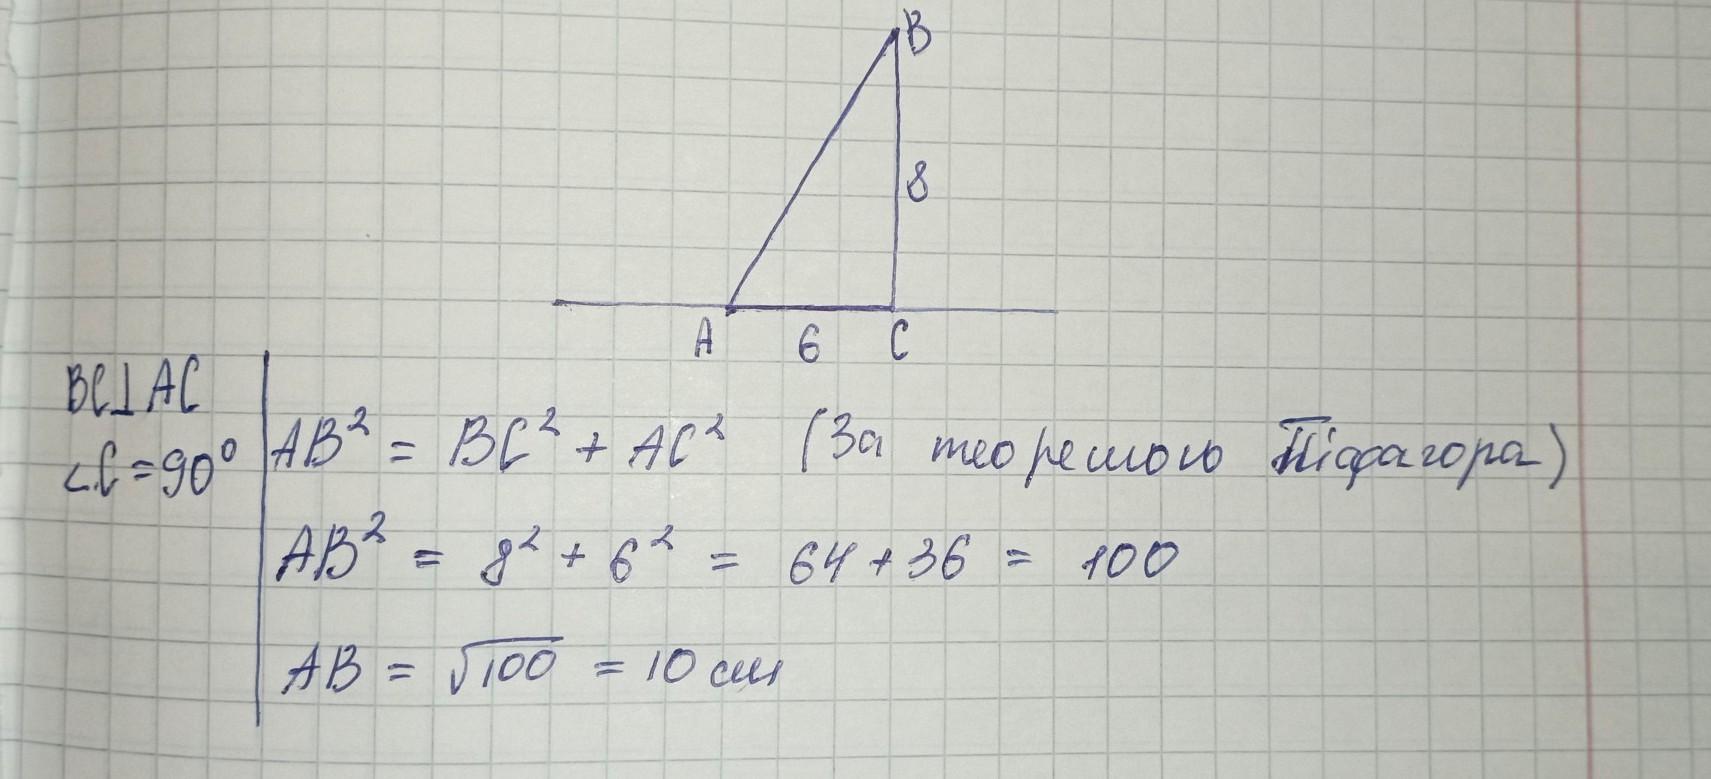 B
8
A 6 C
BC⊥AC
∠C=90°
AB² = BC² + AC² (За теоремою Піфагора)
AB² = 8² + 6² = 64 + 36 = 100
AB = √100 = 10 см